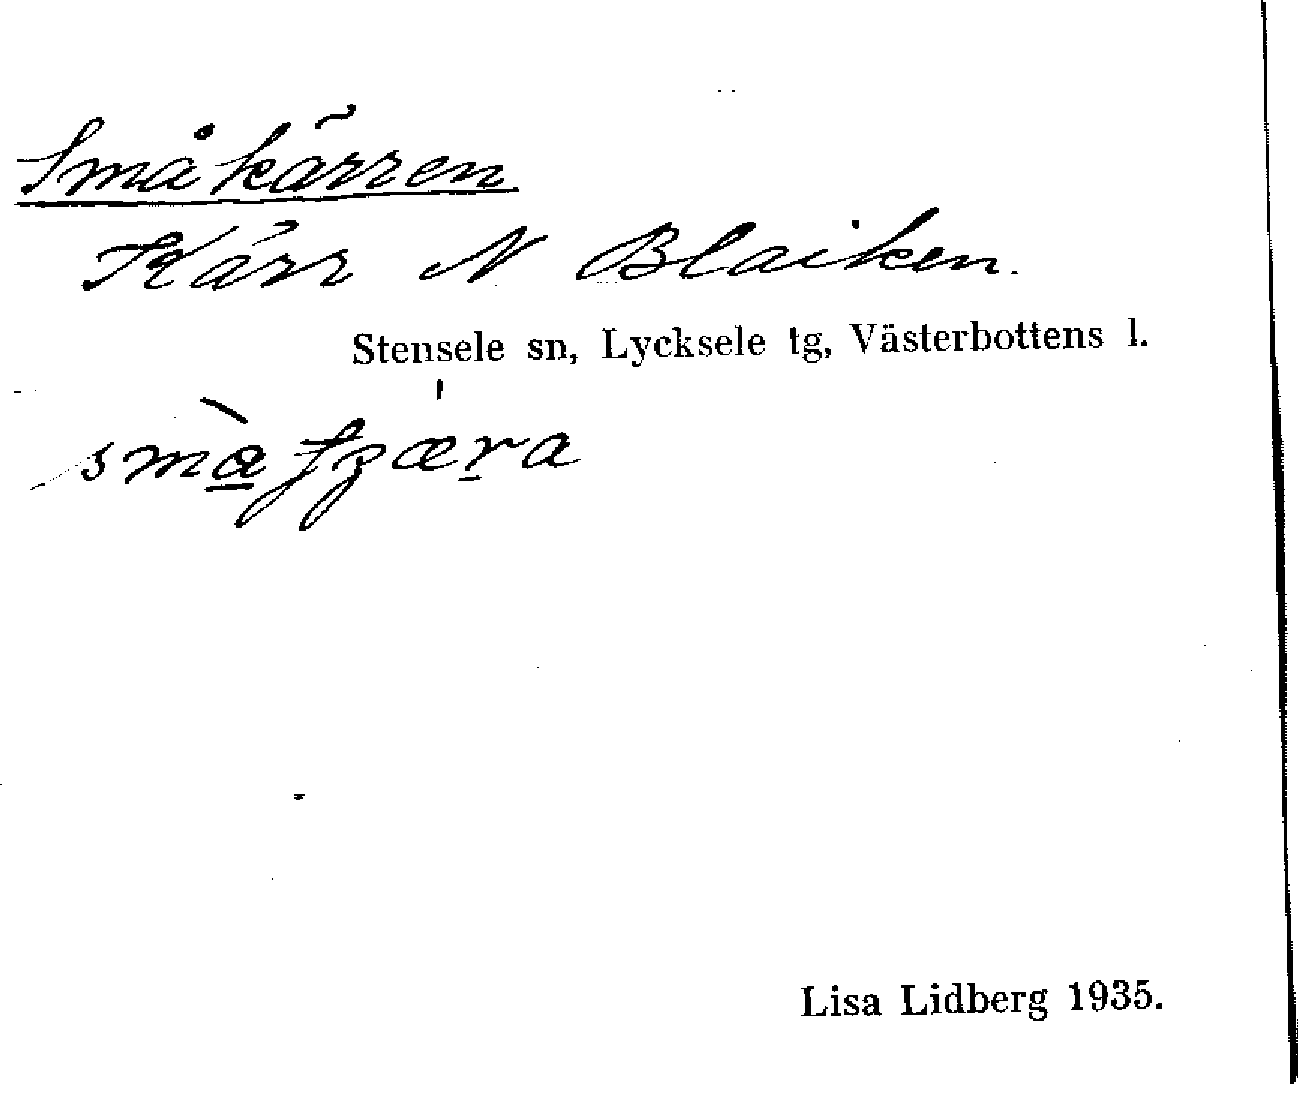 Småkärren
Kärr N Blaiken.
Stensele sn, Lycksele tg, Västerbottens l.
Lisa Lidberg 1935.